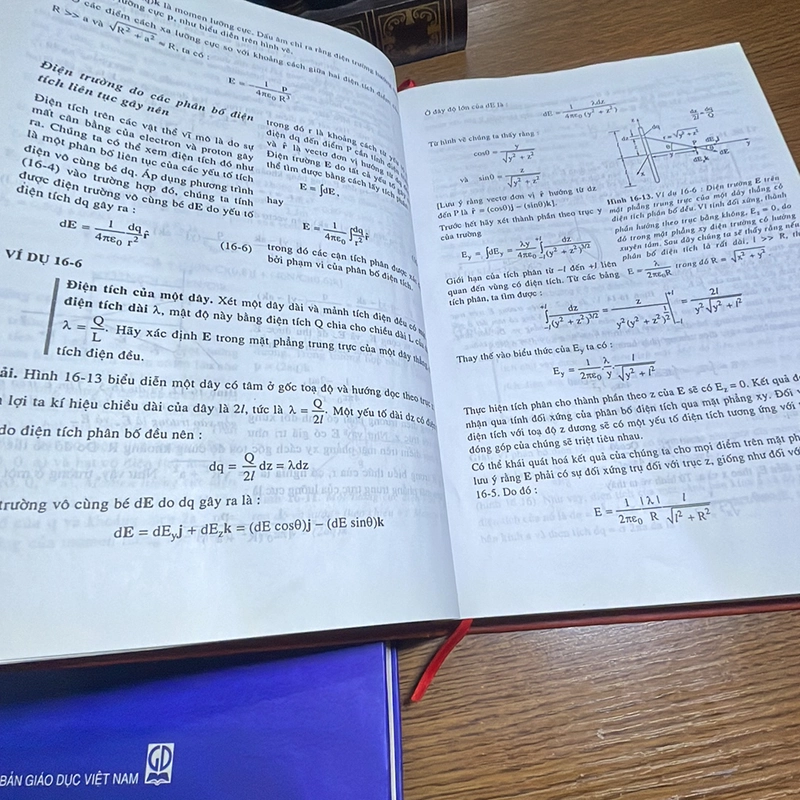 pk là momen lưỡng cực. Dấu âm chỉ ra rằng điện trường hướng
lưỡng cực p, như biểu diễn trên hình vẽ.
các điểm cách xa lưỡng cực so với khoảng cách giữa hai điện tích điểm
R >> a và √(R² + a²) ≈ R, ta có :
E = 1/(4πε₀) p/R³
Điện trường do các phân bố điện
tích liên tục gây nên
Điện tích trên các vật thể vĩ mô là do sự
mất cân bằng của electron và proton gây
ra. Chúng ta có thể xem điện tích đó như
là một phân bố liên tục của các yếu tố tích
điện vô cùng bé dq. Áp dụng phương trình
(16-4) vào trường hợp đó, chúng ta tính
được điện trường vô cùng bé dE do yếu tố
điện tích dq gây ra :
dE = 1/(4πε₀) dq/r² r̂
(16-6)
trong đó r là khoảng cách từ yếu
điện dq đến điểm P cần tính
và r̂ là vectơ đơn vị hướng từ
Điện trường E do tất cả yếu tố
thể tìm được bằng cách lấy tích phân
E = ∫dE,
hay
E = 1/(4πε₀) ∫dq/r² r̂
trong đó các cận tích phân được xác
bởi phạm vi của phân bố điện tích.
VÍ DỤ 16-6
Điện tích của một dây. Xét một dây dài và mảnh tích điện đều có
điện tích dài λ, mật độ này bằng điện tích Q chia cho chiều dài L của
λ = Q/L. Hãy xác định E trong mặt phẳng trung trực của một dây thẳng
tích điện đều.
ải. Hình 16-13 biểu diễn một dây có tâm ở gốc toạ độ và hướng dọc theo trục
lợi ta kí hiệu chiều dài của dây là 2l, tức là λ = Q/2l. Một yếu tố dài dz có
do điện tích phân bố đều nên :
dq = Q/2l dz = λdz
trường vô cùng bé dE do dq gây ra là :
dE = dE_y j + dE_z k = (dE cosθ)j − (dE sinθ)k
Ở đây độ lớn của dE là :
dE = 1/(4πε₀) λdz/(y² + z²)
dz/2l = dq/Q
Từ hình vẽ chúng ta thấy rằng :
cosθ = y/√(y² + z²)
và sinθ = z/√(y² + z²)
[Lưu ý rằng vectơ đơn vị r̂ hướng từ dz
đến P là r̂ = (cosθ)j − (sinθ)k].
Trước hết hãy xét thành phần theo trục y
của trường
E_y = ∫dE_y = λy/(4πε₀) ∫₋ₗ⁺ˡ dz/(y² + z²)^(3/2)
Hình 16-13. Ví dụ 16-6 : Điện trường E trên
mặt phẳng trung trực của một dây thẳng có
điện tích phân bố đều. Vì tính đối xứng, thành
phần hướng theo trục bằng không, E_z = 0, do
đó trong mặt phẳng xy điện trường có hướng
xuyên tâm. Sau đây chúng ta sẽ thấy rằng nếu
phân bố điện tích là rất dài, l >> R, th
E = λ/(2πε₀R), trong đó R = √(x² + y²).
Giới hạn của tích phân từ −l đến +l liên
quan đến vùng có điện tích. Từ các bảng
tích phân, ta tìm được :
∫₋ₗ⁺ˡ dz/(y² + z²)^(3/2) = z/(y²(y² + z²)^(1/2)) |₋ₗ⁺ˡ = 2l/(y²√(y² + l²))
Thay thế vào biểu thức của E_y ta có :
E_y = 1/(2πε₀) λ/y l/√(y² + l²)
Thực hiện tích phân cho thành phần theo z của E sẽ có E_z = 0. Kết quả đ
nhận qua tính đối xứng của phân bố điện tích qua mặt phẳng xy. Đối
điện tích với toạ độ z dương sẽ có một yếu tố điện tích tương ứng với
đóng góp của chúng sẽ triệt tiêu nhau.
Có thể khái quát hoá kết quả của chúng ta cho mọi điểm trên mặt ph
lưu ý rằng E phải có sự đối xứng trụ đối với trục z, giống như đối vớ
16-5. Do đó :
E = 1/(2πε₀) |λ|/R l/√(l² + R²)
BẢN GIÁO DỤC VIỆT NAM
GD